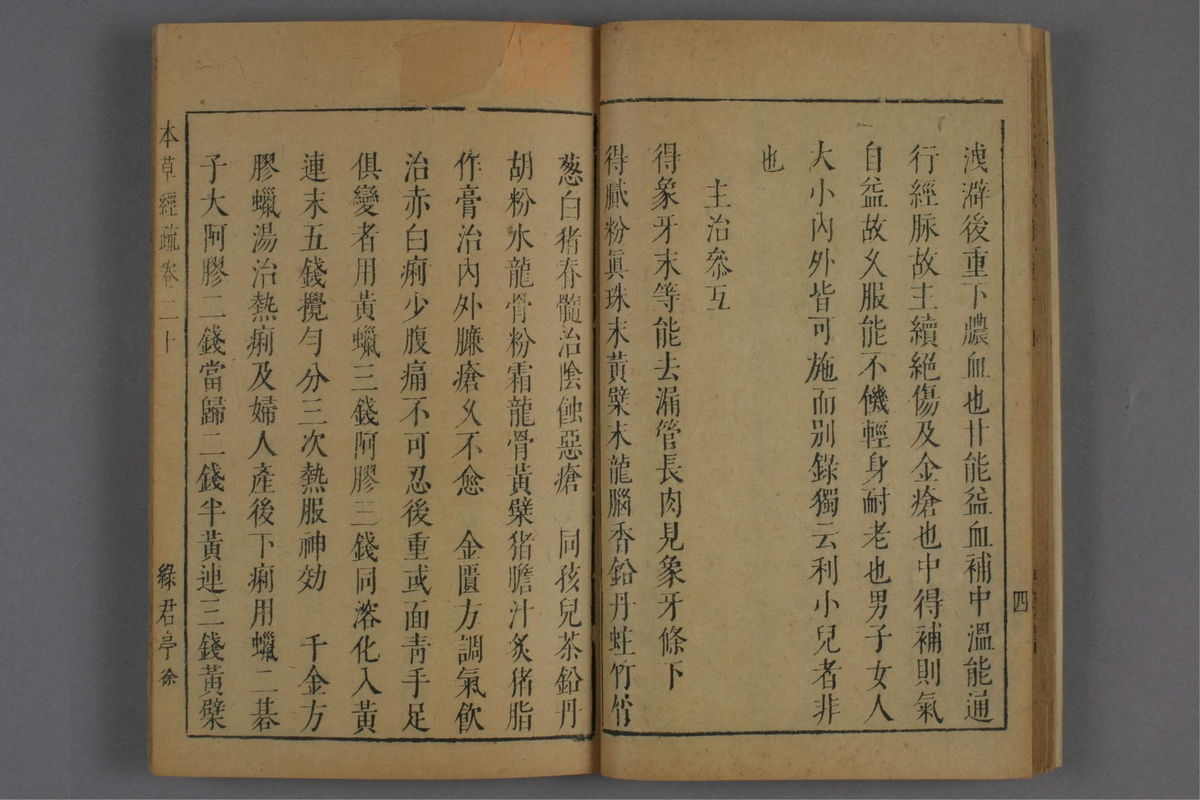 洩澼後重下膿血也甘能益血補中溫能通
行經脉故主續絕傷及金瘡也中得補則氣
自益故久服能不饑輕身耐老也男子女人
大小內外皆可施而別錄獨云利小兒者非
也
主治叅互
得象牙末等能去漏管長肉見象牙條下
得膩粉眞珠末黃檗末龍腦香鉛丹蛀竹竹
四
葱白猪脊髓治陰蝕惡瘡　同孩兒茶鉛丹
胡粉水龍骨粉霜龍骨黃檗猪膽汁炙猪脂
作膏治內外臁瘡久不愈　金匱方調氣飮
治赤白痢少腹痛不可忍後重或面靑手足
俱變者用黃蠟三錢阿膠三錢同溶化入黃
連末五錢攪勻分三次熱服神効　千金方
膠蠟湯治熱痢及婦人產後下痢用蠟二棊
子大阿膠二錢當歸二錢半黃連三錢黃檗
本草經疏卷二十
綠君亭
徐